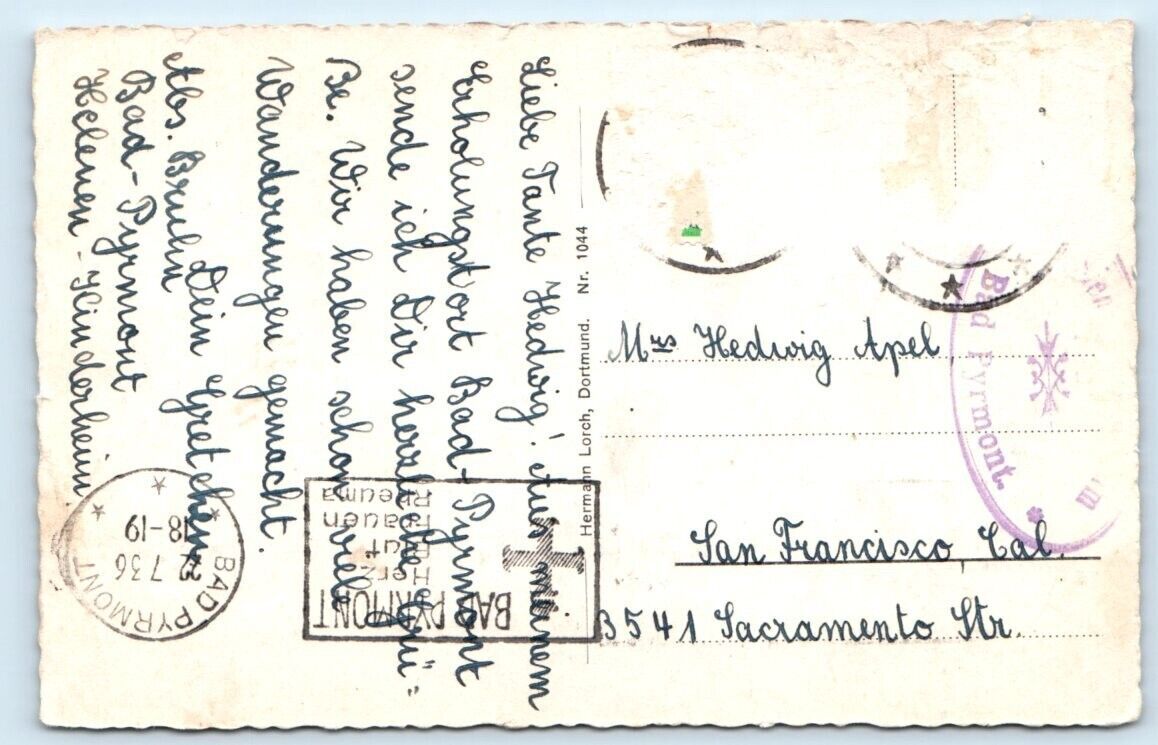 Liebe Tante Hedwig! Aus meinem
Erholungsort Bad-Pyrmont
sende ich Dir herzliche Grü-
ße. Wir haben schon viele
Wanderungen gemacht.
Dein Gretchen
Abs. Bruhn
Bad-Pyrmont
Helenen-Kinderheim
Hermann Lorch, Dortmund. Nr. 1044
Mrs Hedwig Apel
San Francisco Cal.
3541 Sacramento Str.
Bad Pyrmont.
BAD PYRMONT
Herz
Blut
Frauen
Rheuma
BAD PYRMONT
7 36
18-19